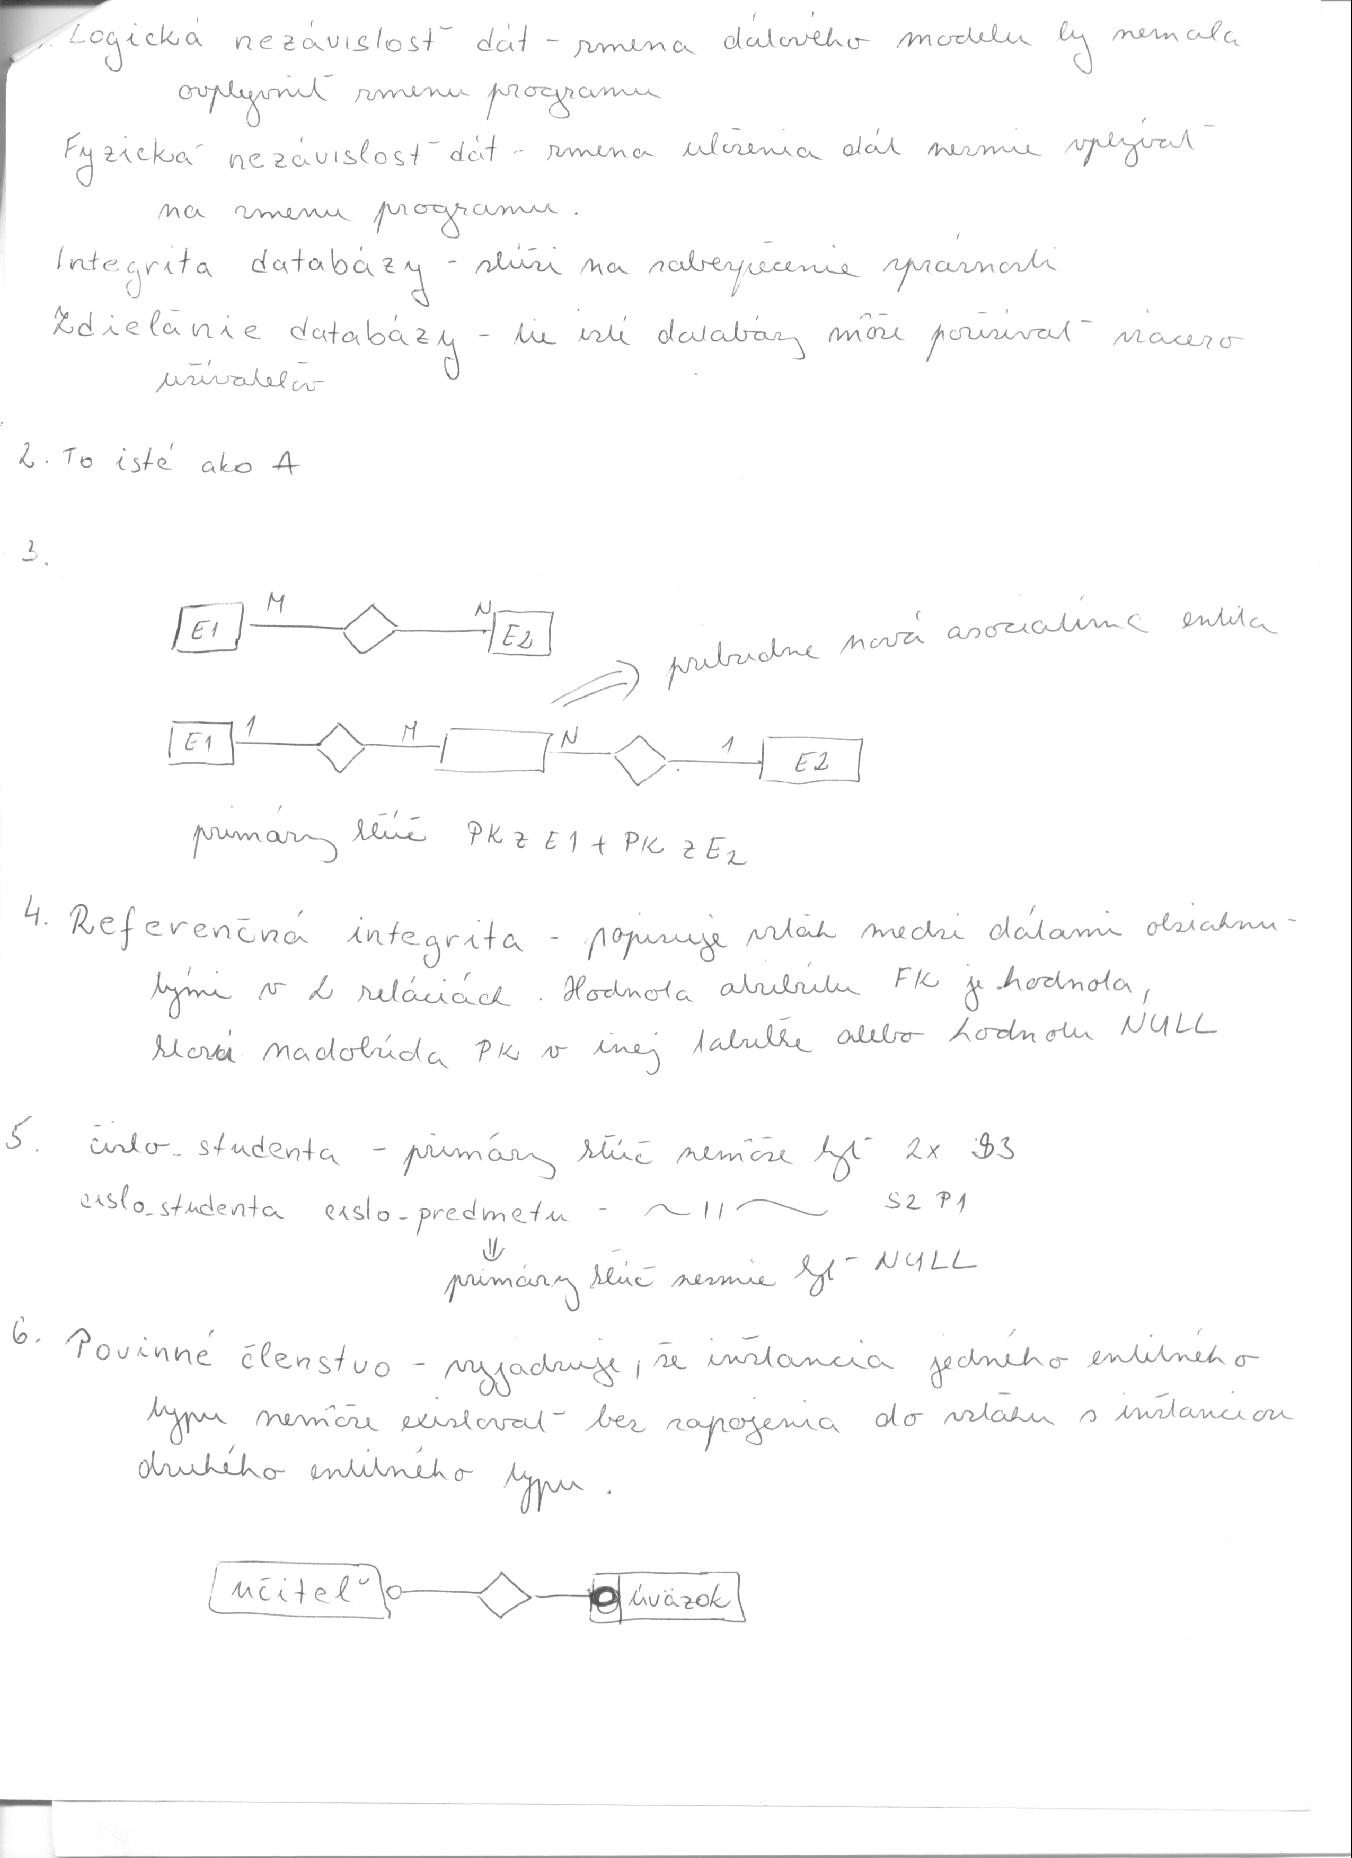 1. Logická nezávislosť dát - zmena dátového modelu by nemala
ovplyvniť zmenu programu
Fyzická nezávislosť dát - zmena uloženia dát nesmie vplývať
na zmenu programu.
Integrita databázy - slúži na zabezpečenie správnosti
Zdielánie databázy - tie isté databázy môže používať viacero
užívateľov
2. To isté ako A
3.
M N
E1 E2
pribudne nová asociatívna entita
1 M N 1
E1 E2
primárny kľúč PK z E1 + PK z E2
4. Referenčná integrita - popisuje vzťah medzi dátami obsiahnu-
tými v 2 reláciách. Hodnota atribútu FK je hodnota,
ktorá nadobúda PK v inej tabuľke alebo hodnotu NULL
5. číslo_studenta - primárny kľúč nemôže byť 2x S3
cislo_studenta cislo_predmetu - ~ 11 ~ S2 P1
⇓
primárny kľúč nesmie byť NULL
6. Povinné členstvo - vyjadruje, že inštancia jedného entitného
typu nemôže existovať bez zapojenia do vzťahu s inštanciou
druhého entitného typu.
učiteľ úväzok